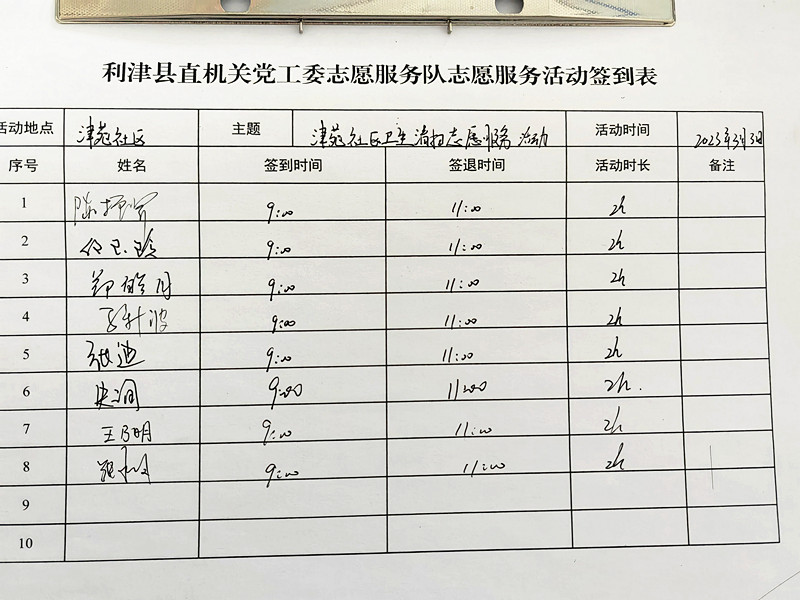 利津县直机关党工委志愿服务队志愿服务活动签到表
活动地点 津苑社区 主题 津苑社区卫生清扫志愿服务活动 活动时间 2023年3月3日
序号 姓名 签到时间 签退时间 活动时长 备注
1 9:00 11:00 2h
2 9:00 11:00 2h
3 9:00 11:00 2h
4 9:00 11:00 2h
5 张迪 9:00 11:00 2h
6 9:00 11:00 2h.
7 王乃明 9:00 11:00 2h
8 9:00 11:00 2h
9
10